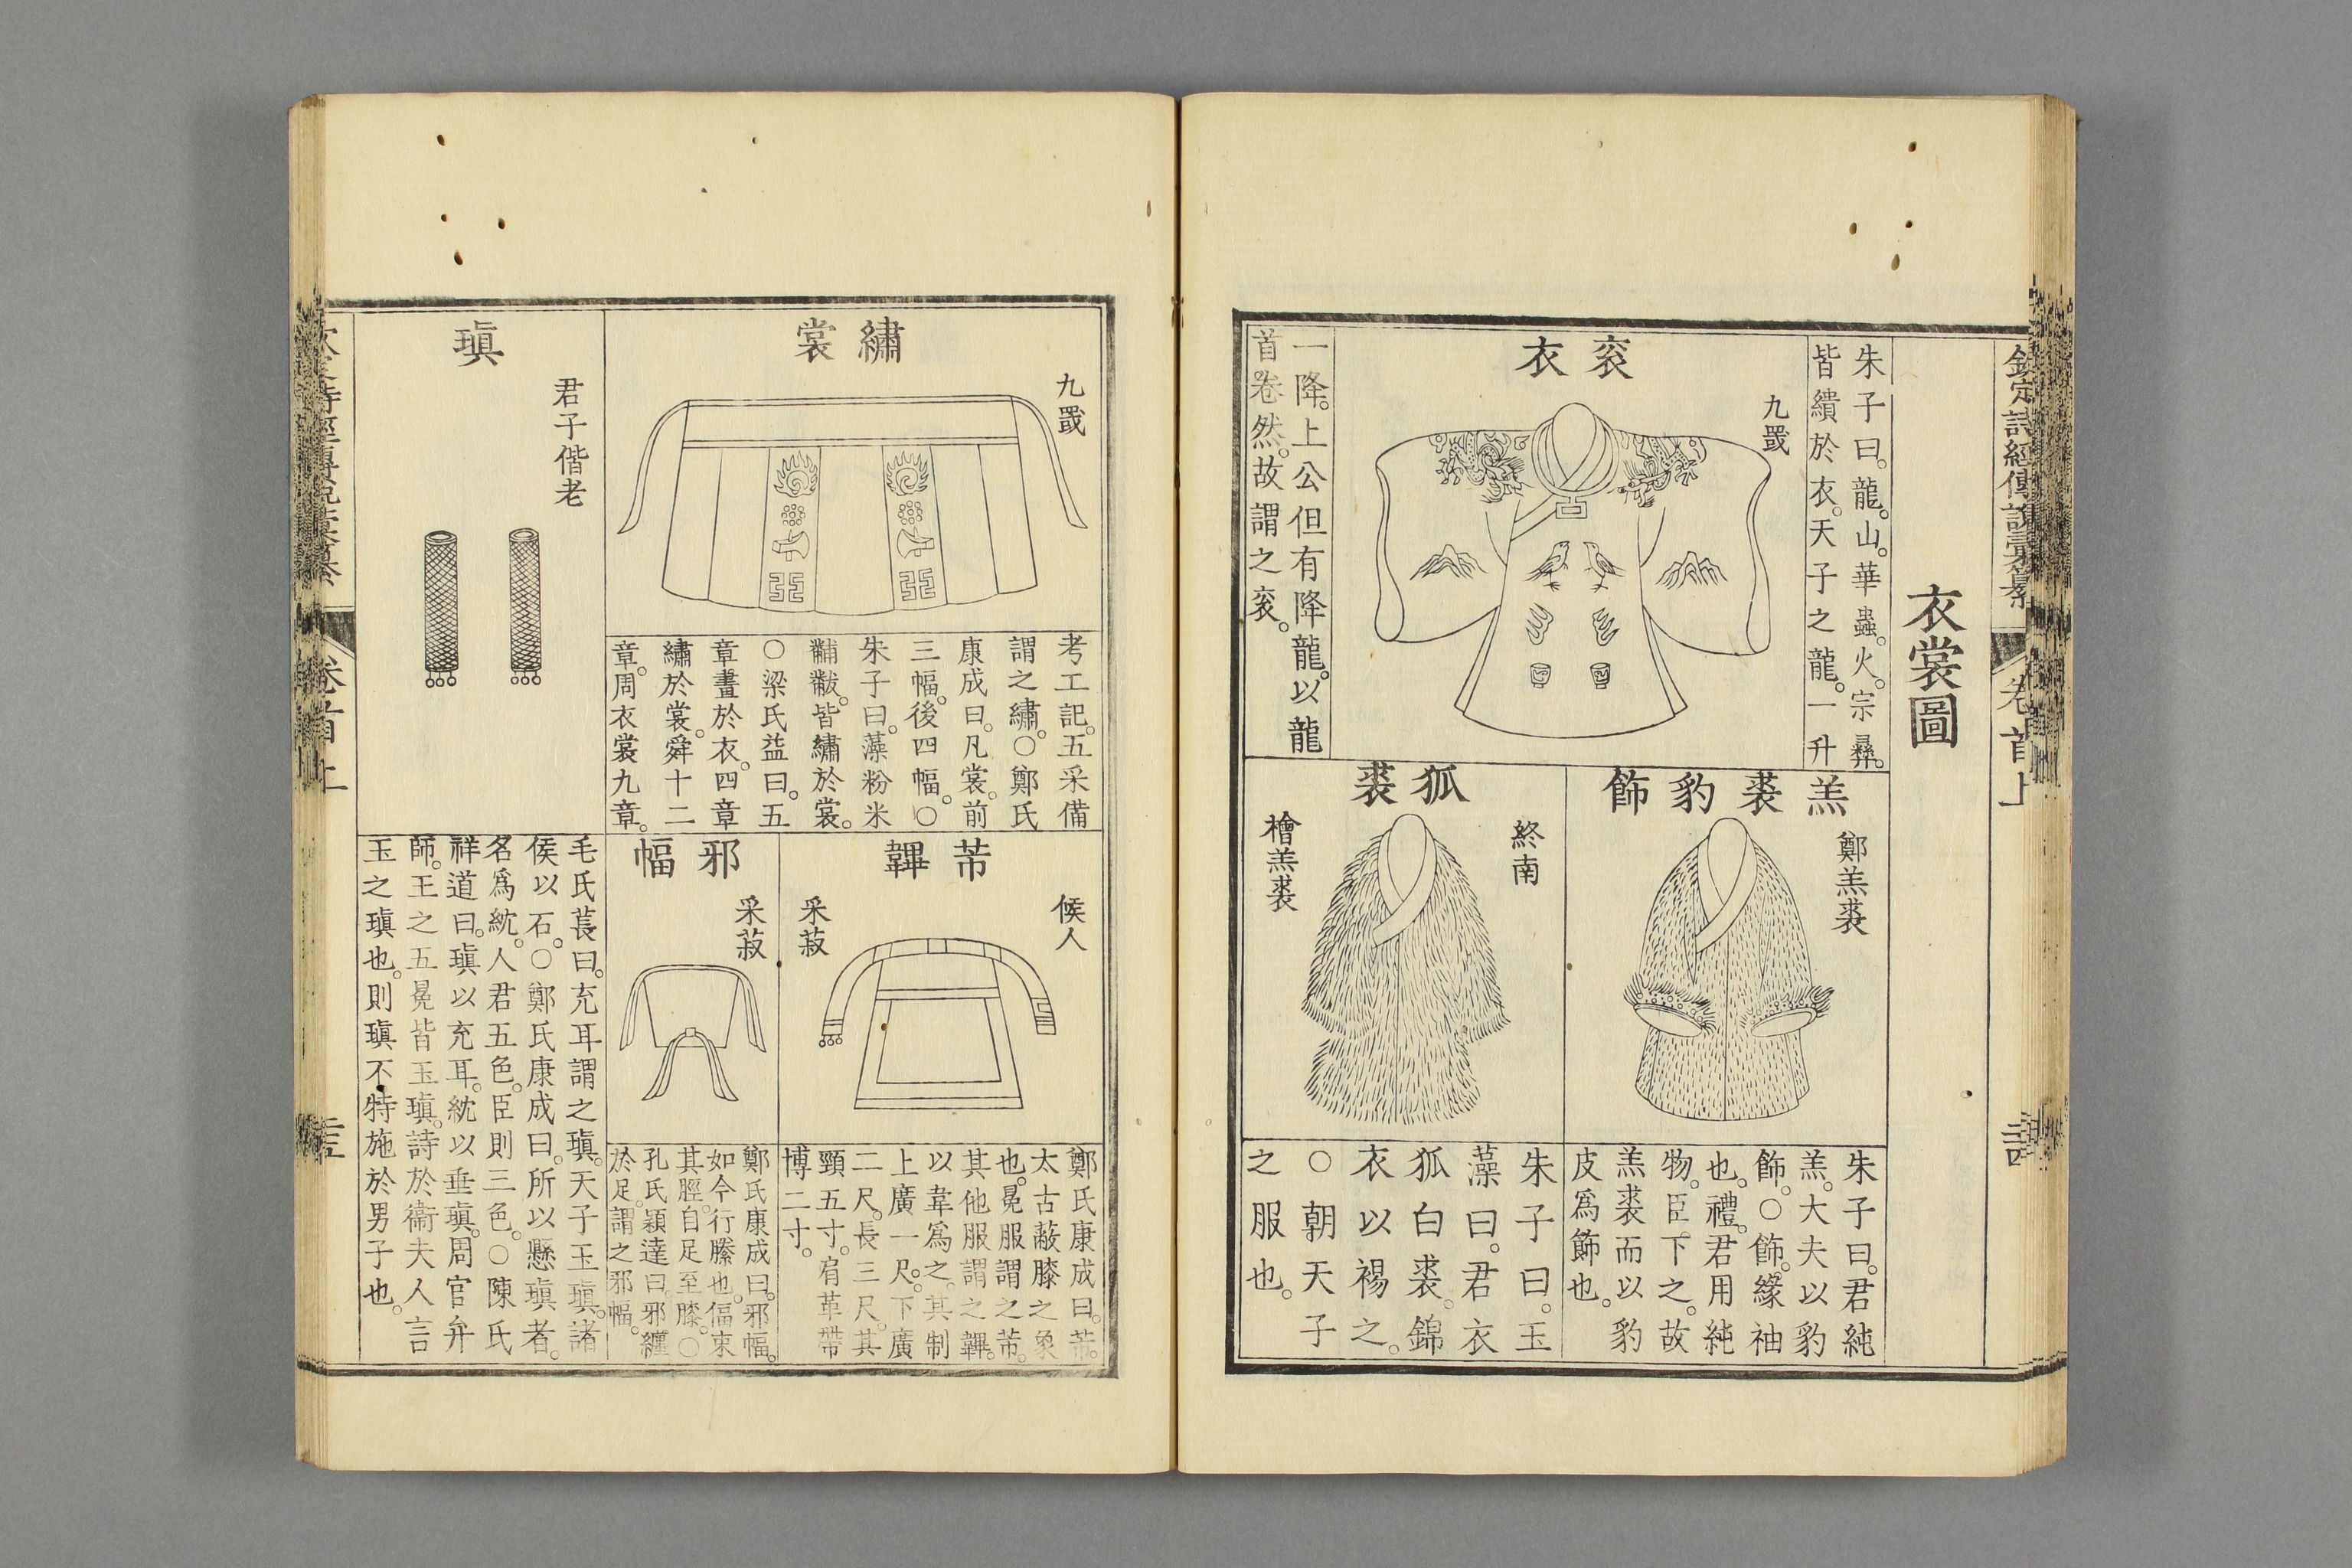 欽定詩經傳說彙纂
卷首上
衣裳圖
袞衣
九罭
朱子曰。龍。山。華蟲。火。宗彝。
皆繢於衣。天子之龍。一升
一降。上公但有降龍。以龍
首卷然。故謂之袞。
羔裘豹飾
鄭羔裘
朱子曰。君純
羔。大夫以豹
飾。○飾。緣袖
也。禮。君用純
物。臣下之。故
羔裘而以豹
皮爲飾也。
狐裘
終南
檜羔裘
朱子曰。玉
藻曰。君衣
狐白裘。錦
衣以裼之。
○朝天子
之服也。
繡裳
九罭
考工記。五采備
謂之繡。○鄭氏
康成曰。凡裳。前
三幅。後四幅。○
朱子曰。藻粉米
黼黻。皆繡於裳。
○梁氏益曰。五
章畫於衣。四章
繡於裳。舜十二
章。周衣裳九章。
芾韠
候人
采菽
鄭氏康成曰。芾。
太古蔽膝之象
也。冕服謂之芾。
其他服謂之韠。
以韋爲之。其制
上廣一尺。下廣
二尺。長三尺。其
頸五寸。肩革帶
博二寸。
邪幅
采菽
鄭氏康成曰。邪幅。
如今行縢也。偪束
其脛。自足至膝。○
孔氏穎達曰。邪纏
於足。謂之邪幅。
瑱
君子偕老
毛氏萇曰。充耳謂之瑱。天子玉瑱。諸
侯以石。○鄭氏康成曰。所以懸瑱者。
名爲紞。人君五色。臣則三色。○陳氏
祥道曰。瑱以充耳。紞以垂瑱。周官弁
師。王之五冕皆玉瑱。詩於衞夫人言
玉之瑱也。則瑱不特施於男子也。
卷首上